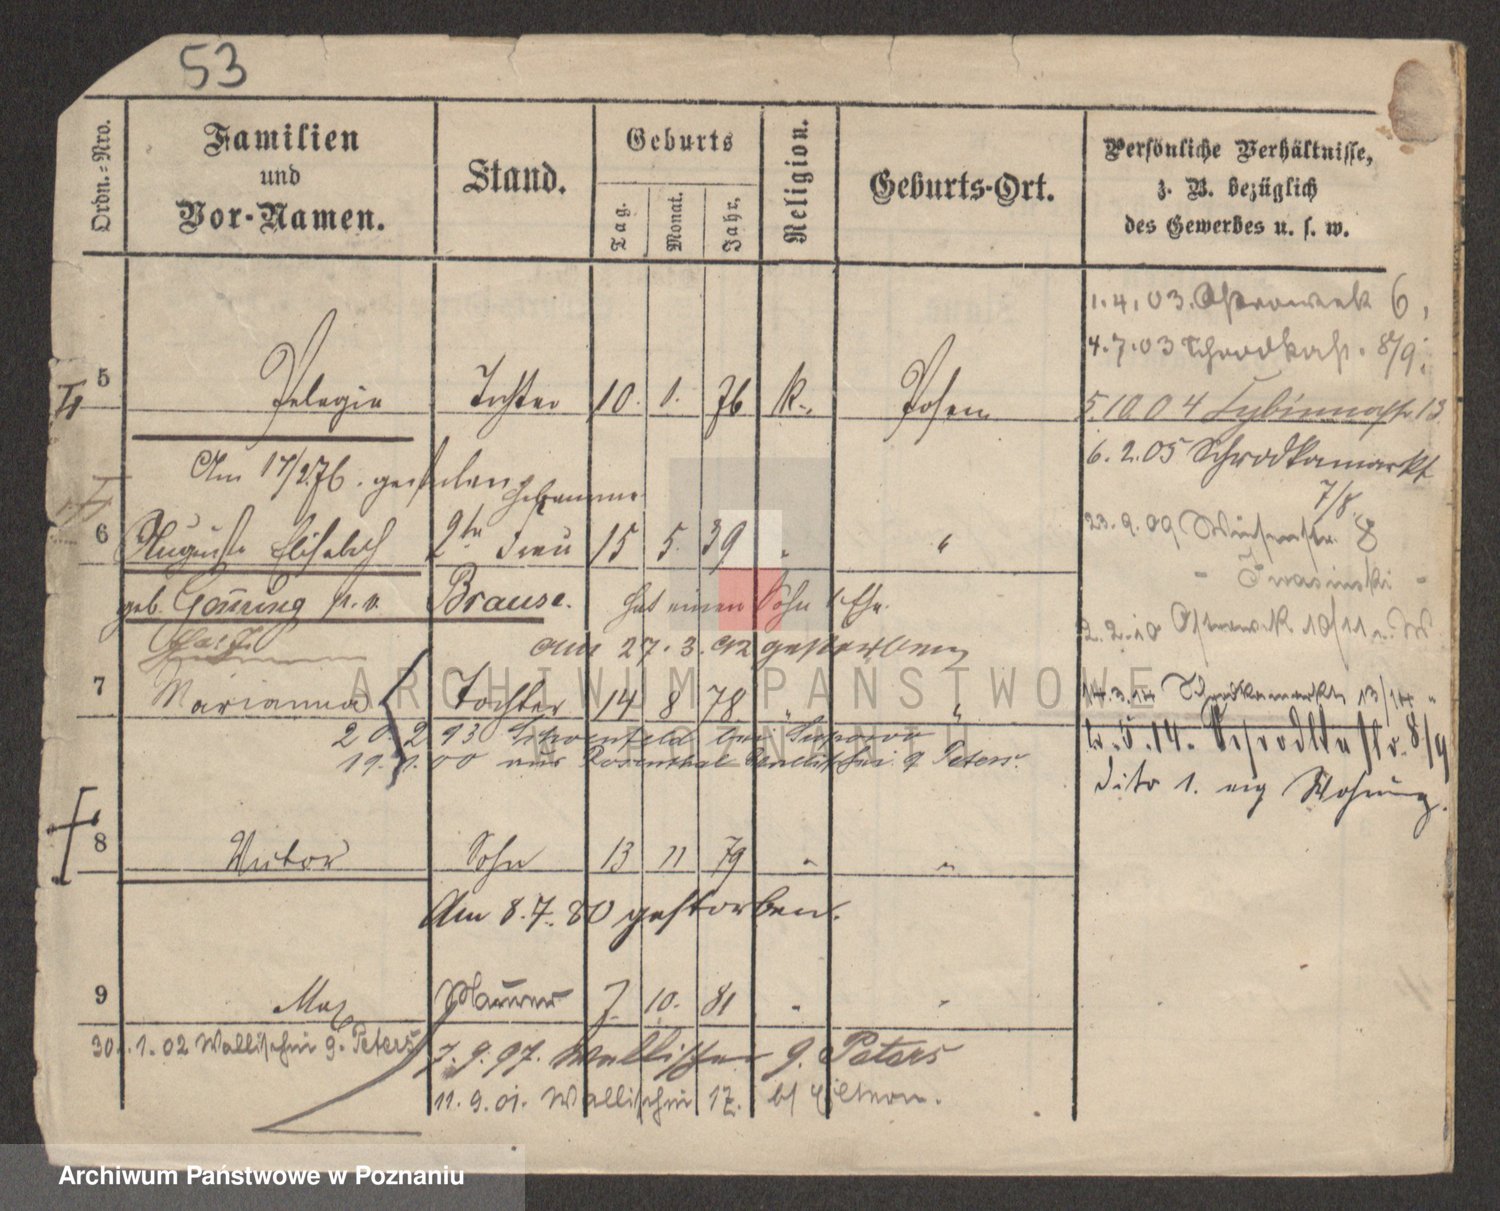 53
Ordn.-Nro.
Familien
und
Vor-Namen.
Stand.
Geburts
Tag.
Monat.
Jahr.
Religion.
Geburts-Ort.
Persönliche Verhältnisse,
z. B. bezüglich
des Gewerbes u. s. w.
1.4.03. Ostrowek 6,
4.7.03 Schrodkastr. 8/9.
5 Pelagia Tochter 10. 1. 76 k. Posen
5.10.04 Cybinnastr. 13
6.2.05 Schrodkamarkt
7/8.
Am 17/2.76. gestorben
Hebamme
6 Auguste Elisabeth 2te Frau 15 5. 39 " "
23.9.09 8
geb. p. v. Brause. hat einen Sohn I Ehe.
2.2.10 Ostrowek 10/11
am 27.3.92 gestorben
7 Marianna Tochter 14 8 78 " "
14.3.14 Schrodkamarkt 13/14
20.2.93
5.14. Schrodkastr. 8/9
19. .00 aus Rosenthal Wallischei 9 Peters.
dito 1. eig Wohnung.
8 Victor Sohn 13 11 79 " "
Am 8.7.80 gestorben.
9 Max Maurer 7. 10. 81 " "
30. .1.02 Wallischei 9. Peters
7.9.97. Wallischei 9. Peters
11.9.01. Wallischei 12. b/ Eltern.
ARCHIWUM PAŃSTWOWE
W POZNANIU
Archiwum Państwowe w Poznaniu